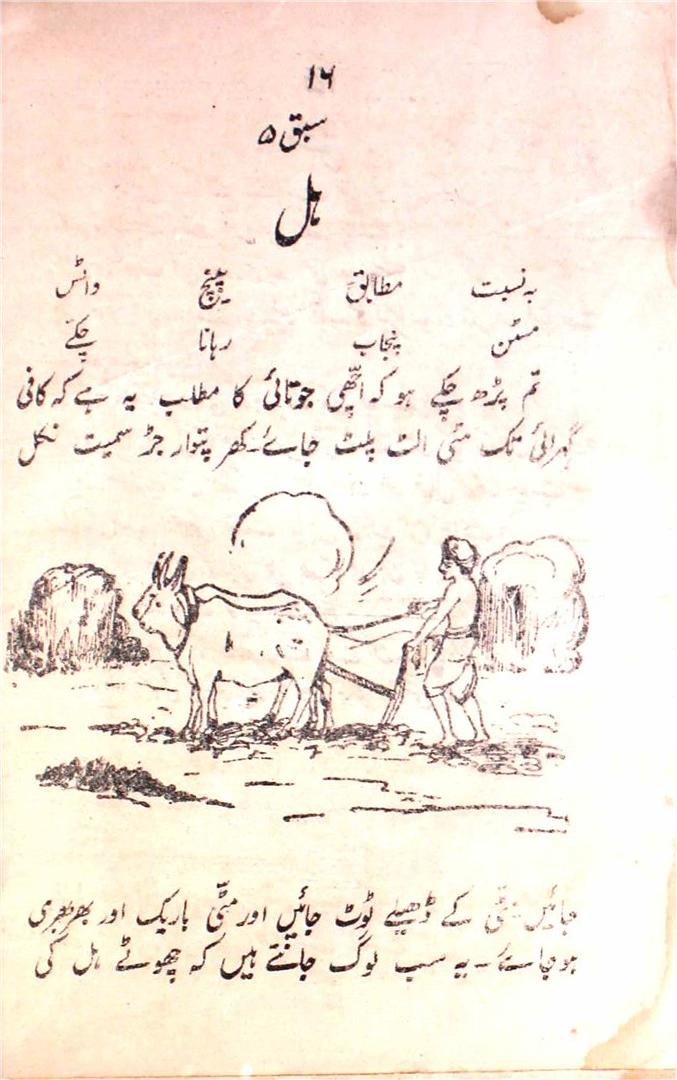 ۱۶
سبق ۵
ہل
بہ نسبت مطابق پینچ واٹس
مسٹن پنجاب رہانا چکے
تم پڑھ چکے ہو کہ اچّھی جوتائی کا مطلب یہ ہے کہ کافی
گہرائی تک مٹی الٹ پلٹ جائے۔ کھر پتوار جڑ سمیت نکل
جائیں مٹّی کے ڈھیلے ٹوٹ جائیں اور مٹّی باریک اور بھربھری
ہو جائے۔ یہ سب لوگ جانتے ہیں کہ چھوٹے ہل کی